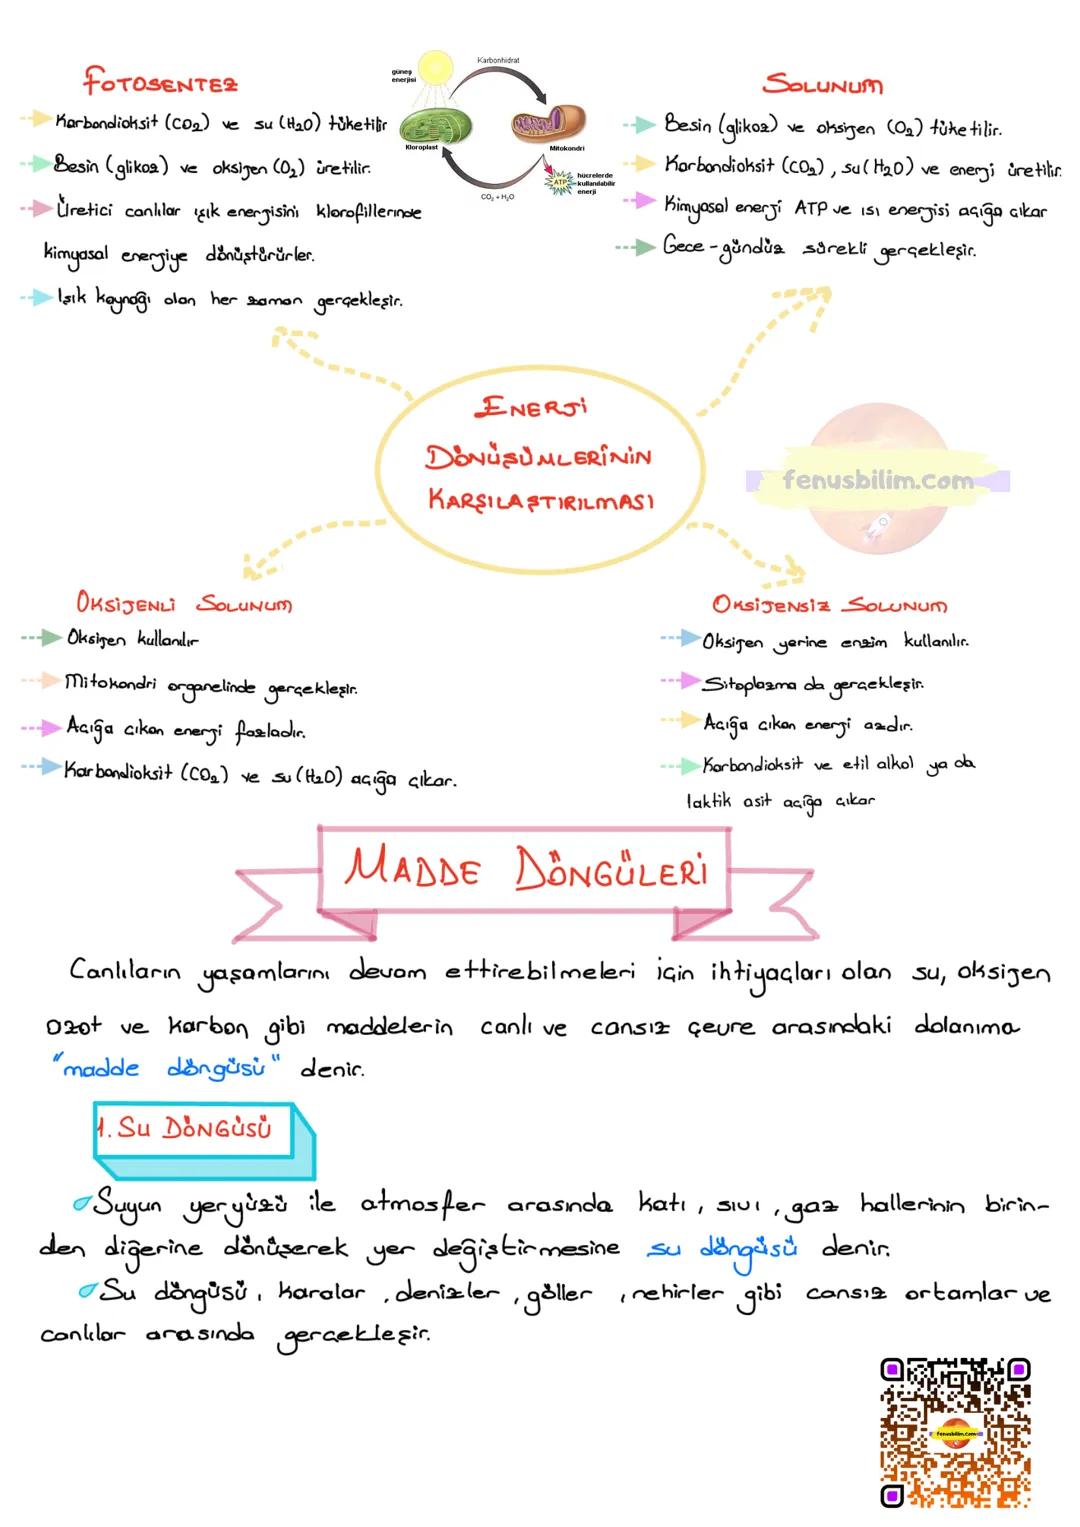 FOTOSENTEZ
Karbondioksit (CO₂) ve su (H₂O) tüketilir
Besin (glikoz) ve oksijen (O₂) üretilir.
Üretici canlılar ışık enerjisini klorofillerinde
kimyasal enerjiye dönüştürürler.
Işık kaynağı olan her zaman gerçekleşir.
güneş
enerjisi
Karbonhidrat
Kloroplast
Mitokondri
CO₂ + H₂O
ATP
hücrelerde
kullanılabilir
enerji
SOLUNUM
Besin (glikoz) ve oksijen (O₂) tüketilir.
Karbondioksit (CO₂), su (H₂O) ve enerji üretilir.
Kimyasal enerji ATP ve ısı enerjisi açığa çıkar
Gece-gündüz sürekli gerçekleşir.
ENERJİ
DÖNÜŞÜMLERİNİN
KARŞILAŞTIRILMASI
fenusbilim.com
OKSİJENLİ SOLUNUM
Oksijen kullanılır
Mitokondri organelinde gerçekleşir.
Açığa çıkan enerji fazladır.
Karbondioksit (CO₂) ve su (H₂O) açığa çıkar.
OKSİJENSİZ SOLUNUM
Oksijen yerine enzim kullanılır.
Sitoplazma da gerçekleşir.
Açığa çıkan enerji azdır.
Karbondioksit ve etil alkol ya da
laktik asit açığa çıkar
MADDE DÖNGÜLERİ
Canlıların yaşamlarını devam ettirebilmeleri için ihtiyaçları olan su, oksijen
azot ve karbon gibi maddelerin canlı ve cansız çevre arasındaki dolanıma
"madde döngüsü" denir.
1. SU DÖNGÜSÜ
Suyun yeryüzü ile atmosfer arasında katı, sıvı, gaz hallerinin birin-
den diğerine dönüşerek yer değiştirmesine su döngüsü denir.
Su döngüsü, karalar, denizler, göller, nehirler gibi cansız ortamlar ve
canlılar arasında gerçekleşir.
fenusbilim.com